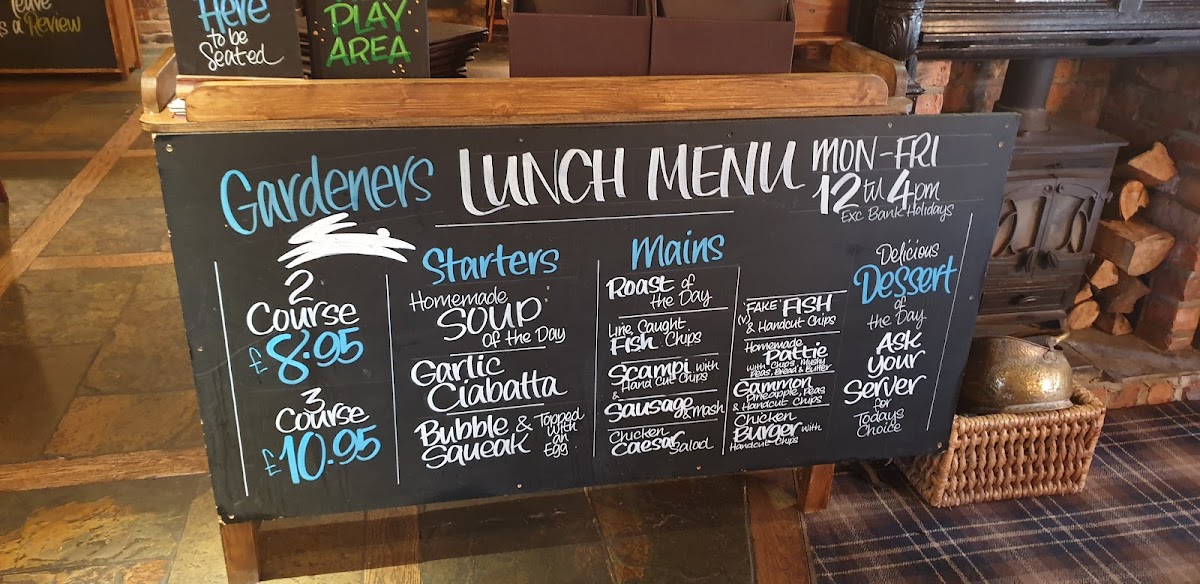 leave
s a Review
Here
to be
Seated
PLAY
AREA
Gardeners LUNCH MENU
MON-FRI
12 til 4pm
Exc Bank Holidays
2
Course
£8.95
3
Course
£10.95
Starters
Homemade
SOUP
of the Day
Garlic
Ciabatta
Bubble &
Squeak
Topped
with
an
Egg
Mains
Roast of
the Day
Line Caught
Fish & Chips
Scampi with
Hand Cut Chips
Sausage & Mash
Chicken
Caesar Salad
'FAKE' FISH
(v) & Handcut Chips
Homemade
Pattie
with Chips, Mushy
Peas, Bread & Butter
Gammon
Pineapple, Peas
& Handcut Chips
Chicken
Burger with
Handcut Chips
Delicious
Dessert
of
the Day
Ask
your
Server
for
Todays
Choice